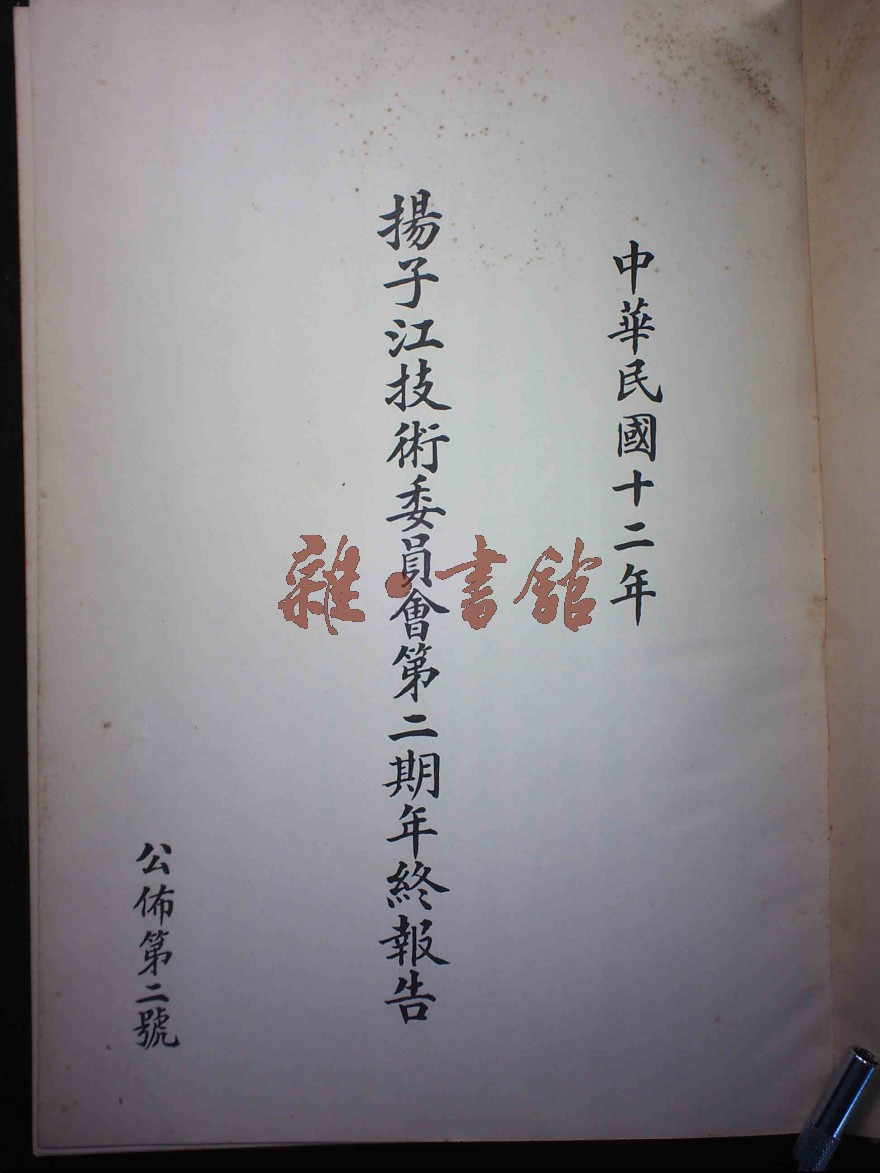 中華民國十二年
揚子江技術委員會第二期年終報告
公佈第二號
雜·書館